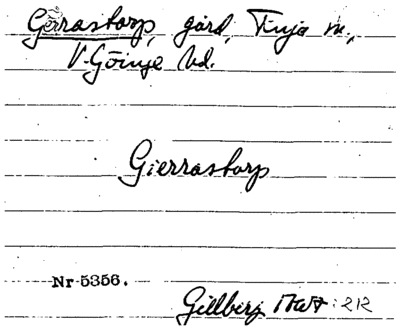 Gerrastorp, gård, Finja sn.,
V. Göinge hd.
Gierrastorp
Nr 5356.
Gillberg 1767: 212